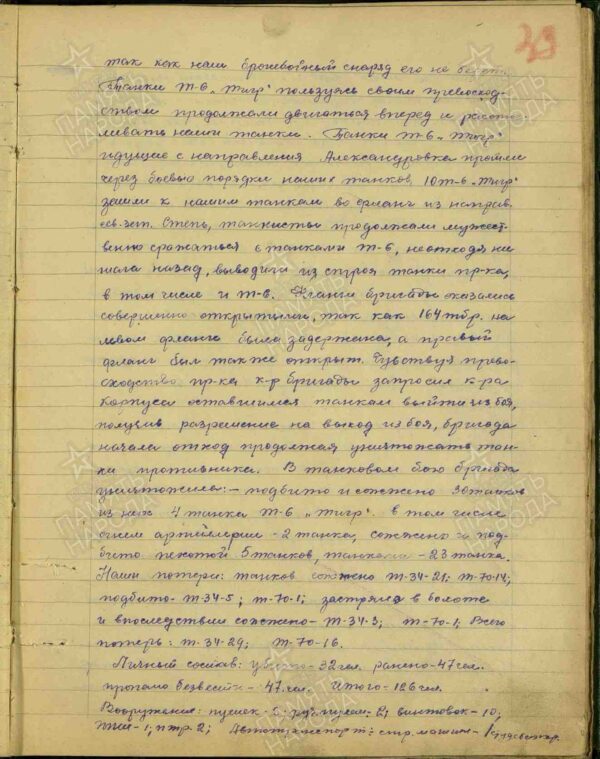 39
так как наш бронебойный снаряд его не берет.
Танки Т-6 "Тигр" пользуясь своим превосход-
ством продолжали двигаться вперед и расстре-
ливать наши танки. Танки Т-6 "Тигр"
идущие с направления Александровка прошли
через боевые порядки наших танков, 10 т-6 "Тигр"
зашли к нашим танкам во фланг из направ.
свх. Степь, танкисты продолжали мужест-
венно сражаться с танками Т-6, неотходя ни
шага назад, выводили из строя танки пр-ка,
в том числе и Т-6. Фланги бригады оказались
совершенно открытыми, так как 164 тбр. на
левом фланге была задержана, а правый
фланг был также открыт. Чувствуя прево-
сходство пр-ка к-р бригады запросил к-ра
корпуса оставшимся танкам выйти из боя,
получив разрешение на выход из боя, бригада
начала отход продолжая уничтожать тан-
ки противника. В танковом бою бригада
уничтожила: - подбито и сожжено 30 танков
из них 4 танка Т-6 "Тигр". в том числе
огнем артиллерии - 2 танка, сожжено и под-
бито пехотой 5 танков, танками - 23 танка.
Наши потери: танков сожжено Т-34-21; Т-70-14;
подбито - Т-34-5; Т-70-1; застряло в болоте
и впоследствии сожжено - Т-34-3; Т-70-1; Всего
потерь: Т-34-29; Т-70-16.
Личный состав: убито - 32 чел. ранено - 47 чел.
пропало безвести - 47 чел. Итого - 126 чел.
Вооружение: пушек - 5; руч. пулем. - 2; винтовок - 10;
ППШ - 1; птр. 2; Автотранспорт: стр. машин - 1
ПАМЯТЬ НАРОДА